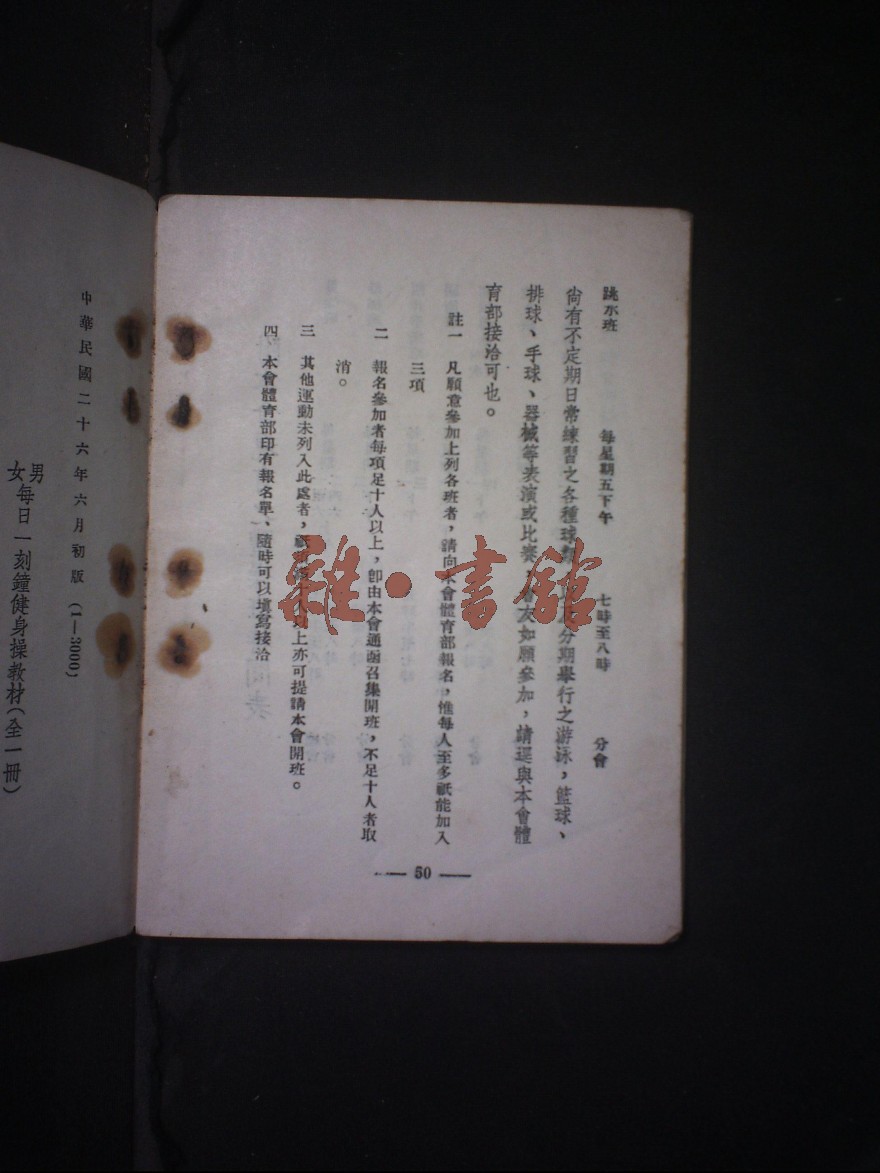 跳水班 每星期五下午 七時至八時 分會
尙有不定期日常練習之各種球 分期舉行之游泳，籃球、
排球、手球、器械等表演或比賽，會友如願參加，請逕與本會體
育部接洽可也。
註一 凡願意參加上列各班者，請向本會體育部報名，惟每人至多祇能加入
三項
二 報名參加者每項足十人以上，卽由本會通函召集開班，不足十人者取
消。
三 其他運動未列入此處者，十人以上亦可提請本會開班。
四 本會體育部印有報名單、隨時可以塡寫接洽
— 50 —
中華民國二十六年六月初版 (1—3000)
男女每日一刻鐘健身操教材(全一冊)
雜·書館